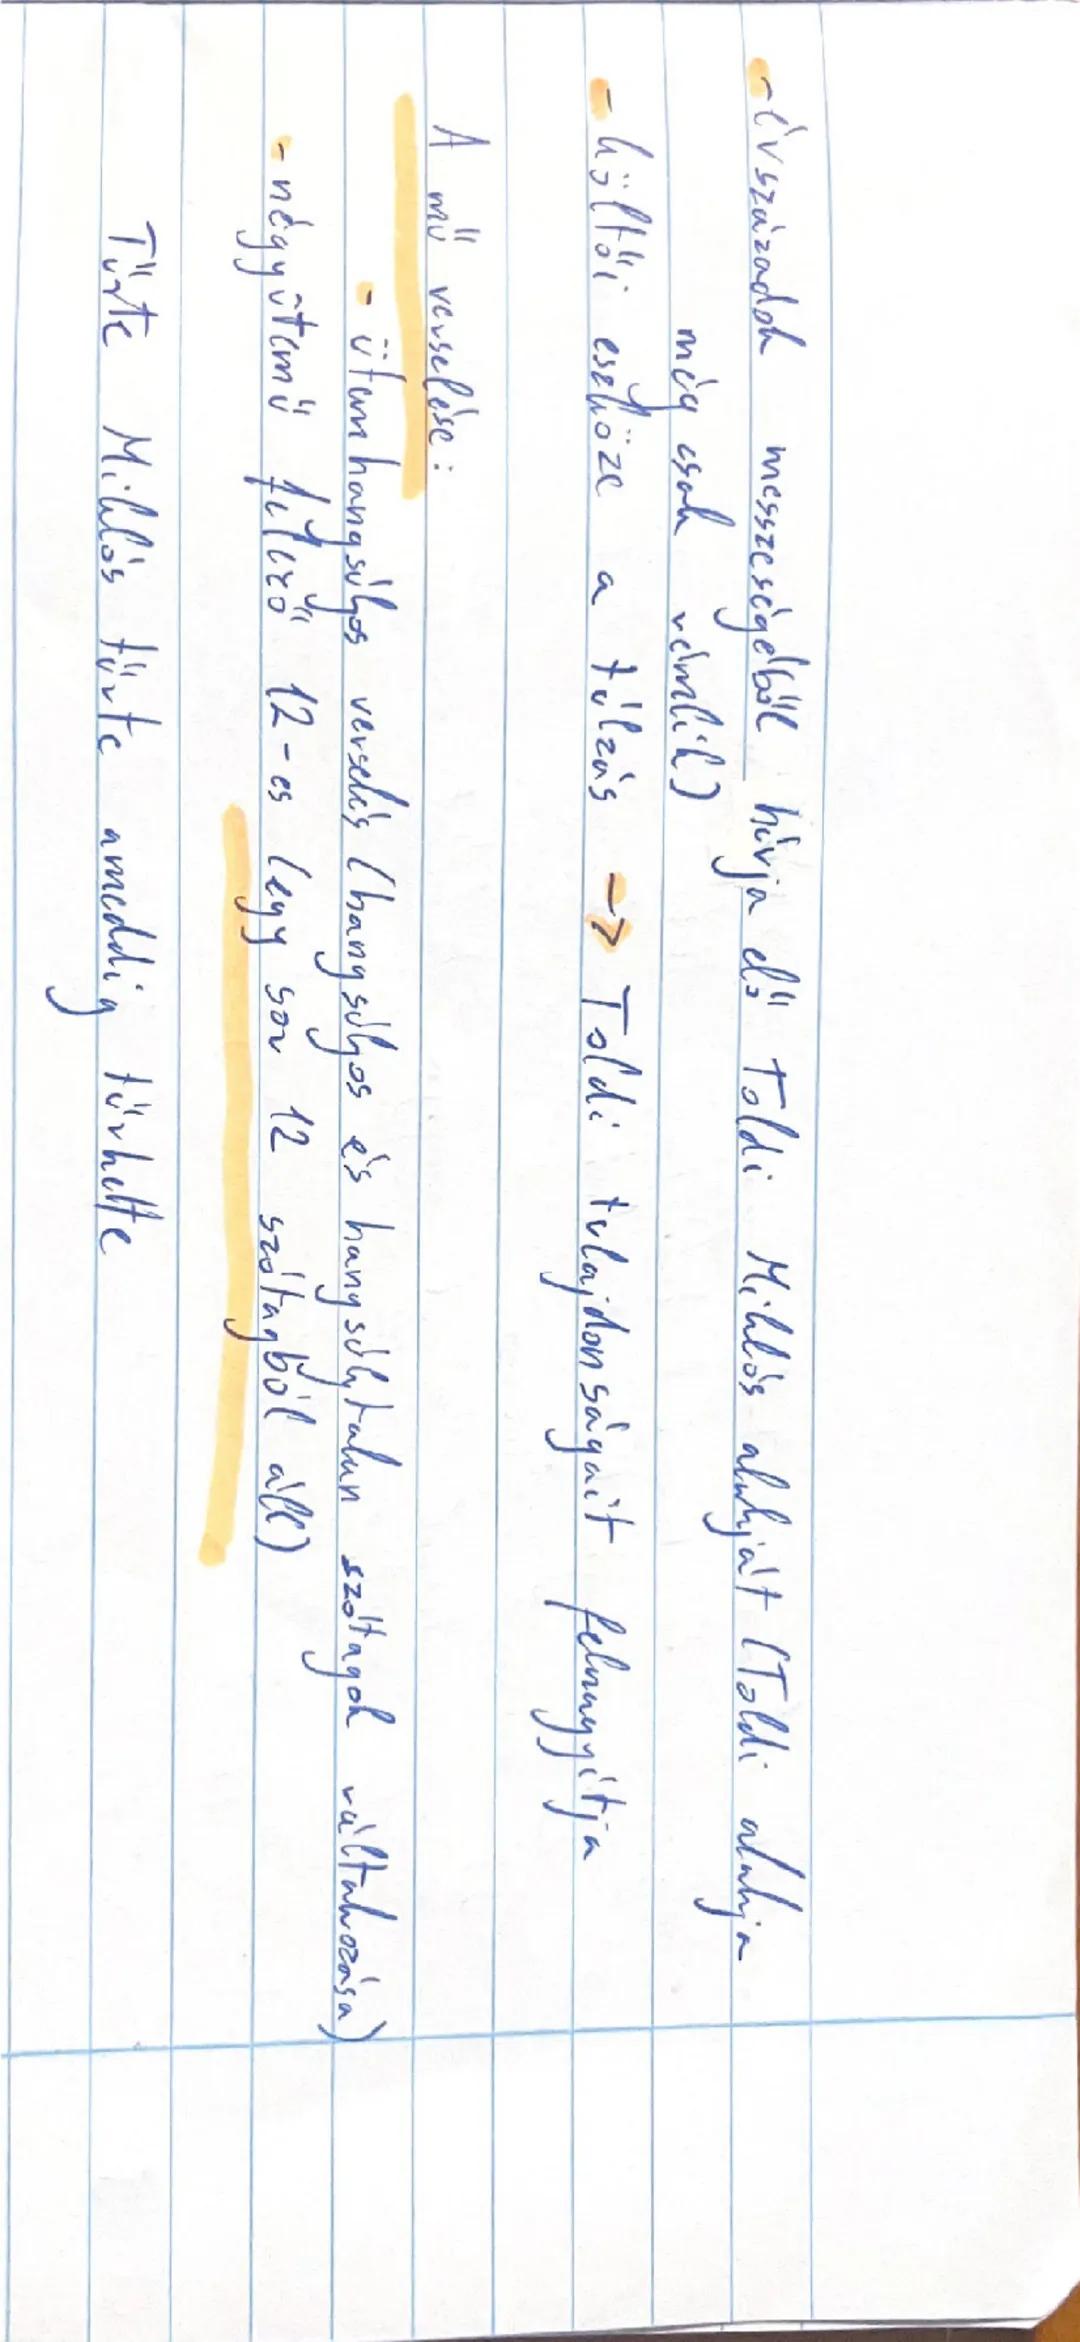 - évszázadok messzeségéből hívja elő Toldi Miklós alakját (Toldi alakja
még csak rémlik)
- költői eszköze a túlzás -> Toldi tulajdonságait felnagyítja
A mű verselése:
- ütemhangsúlyos verselés (hangsúlyos és hangsúlytalan szótagok váltakozása)
- négyütemű felező 12-es (egy sor 12 szótagból áll)
Tűrte Miklós tűrte ameddig tűrhette